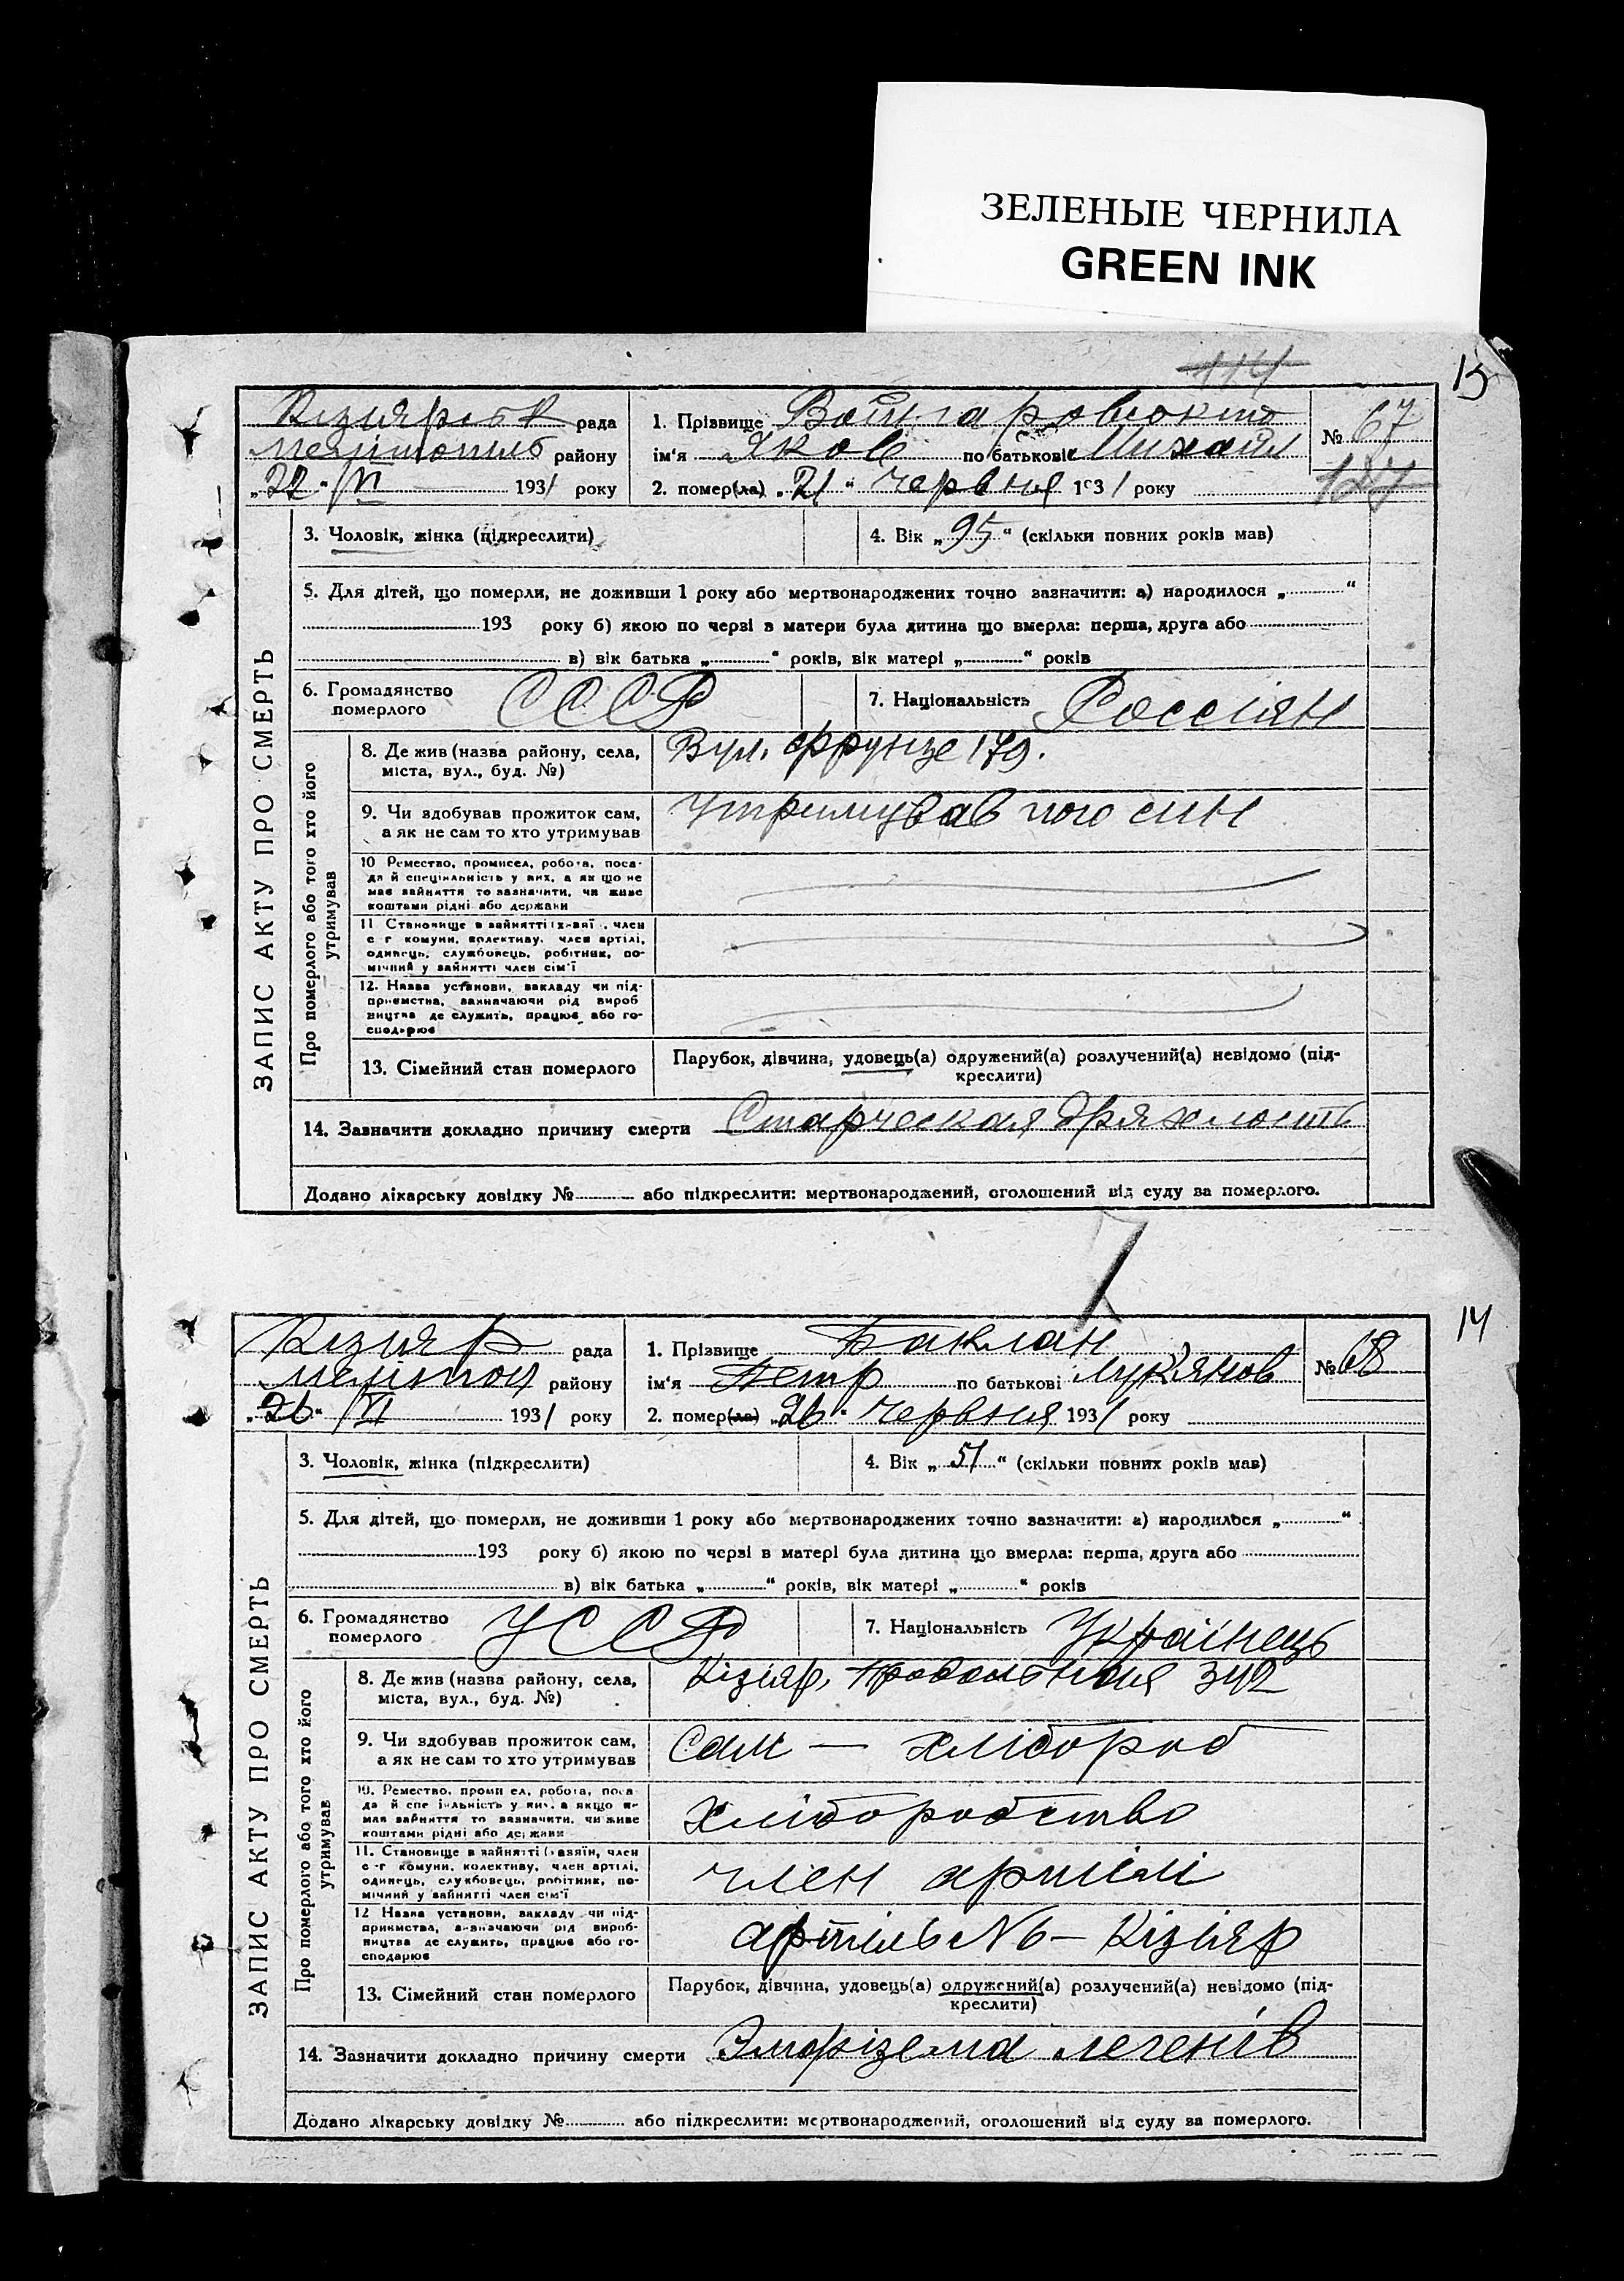 ЗЕЛЕНЫЕ ЧЕРНИЛА
GREEN INK
114
13
рада
району
„22“ VI 1931 року
1. Прізвище
ім'я Яков по батькові Михайл
2. помер(ла) „21“ червня 1931 року
№ 67
127
ЗАПИС АКТУ ПРО СМЕРТЬ
3. Чоловік, жінка (підкреслити)
4. Вік „95“ (скільки повних років мав)
5. Для дітей, що померли, не доживши 1 року або мертвонароджених точно зазначити: а) народилося „ “
193 року б) якою по черзі в матери була дитина що вмерла: перша, друга або
в) вік батька „ “ років, вік матері „ “ років
6. Громадянство
померлого
СССР
7. Національність Россіян
Про померлого або того хто його
утримував
8. Де жив (назва району, села,
міста, вул., буд. №)
Вул. Фрунзе 179.
9. Чи здобував прожиток сам,
а як не сам то хто утримував
Утримував його син
10 Ремество, промисел, робота, поса-
да й спеціяльність у них, а як що не
має зайняття то зазначити, чи живе
коштами рідні або держави
11 Становище в зайнятті член
с-г комуни, колективу, член артілі,
одинець, службовець, робітник, по-
мічний у зайнятті член сім'ї
12. Назва установи, закладу чи під-
приємства, зазначаючи рід вироб
ництва де служить, працює або го-
сподарює
13. Сімейний стан померлого
Парубок, дівчина, удовець(а) одружений(а) розлучений(а) невідомо (під-
креслити)
14. Зазначити докладно причину смерти Старческая дряхлость
Додано лікарську довідку № або підкреслити: мертвонароджений, оголошений від суду за померлого.
7
14
Кізіяр рада
Мелітоп району
„26“ VI 1931 року
1. Прізвище Баклан
ім'я Петр по батькові Лук'янов
2. помер(ла) „26“ червня 1931 року
№ 68
ЗАПИС АКТУ ПРО СМЕРТЬ
3. Чоловік, жінка (підкреслити)
4. Вік „51“ (скільки повних років мав)
5. Для дітей, що померли, не доживши 1 року або мертвонароджених точно зазначити: а) народилося „ “
193 року б) якою по черзі в матері була дитина що вмерла: перша, друга або
в) вік батька „ “ років, вік матері „ “ років
6. Громадянство
померлого
УССР
7. Національність Українець
Про померлого або того хто його
утримував
8. Де жив (назва району, села,
міста, вул., буд. №)
Кізіяр, 342
9. Чи здобував прожиток сам,
а як не сам то хто утримував
Сам — хлібороб
10. Ремество, промисел, робота, поса-
да й спеціяльність у них, а якщо не-
має зайняття то зазначити, чи живе
коштами рідні або держави
Хліборобство
11. Становище в зайнятті (хазяїн, член
с-г комуни, колективу, член артілі,
одинець, службовець, робітник, по-
мічний у зайнятті член сім'ї
член артілі
12 Назва установи, закладу чи під-
приємства, зазначаючи рід вироб-
ництва, де служить, працює або го-
сподарює
артіль №6 — Кізіяр
13. Сімейний стан померлого
Парубок, дівчина, удовець(а) одружений(а) розлучений(а) невідомо (під-
креслити)
14. Зазначити докладно причину смерти Эмфізема легенів
Додано лікарську довідку № або підкреслити: мертвонароджений, оголошений від суду за померлого.